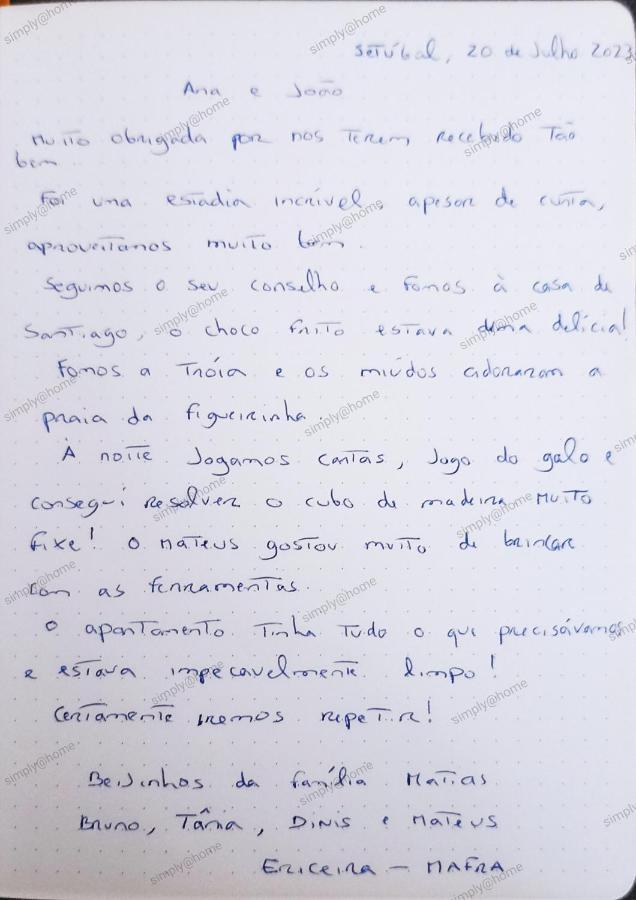 Setúbal, 20 de Julho 2023
Ana e João
Muito obrigada por nos terem recebido tão
bem
Foi uma estadia incrível, apesar de curta,
aproveitamos muito bem.
Seguimos o seu conselho e fomos à casa de
Santiago, o choco frito estava uma delícia!
Fomos a Tróia e os miúdos adoraram a
praia da figueirinha.
À noite Jogamos cartas, Jogo do galo e
consegui resolver o cubo de madeira MUITO
fixe! O MATEUS gostou muito de brincar
com as ferramentas.
O apartamento tinha tudo o que precisávamos
e estava impecavelmente limpo!
Certamente iremos repetir!
Beijinhos da família Matias
Bruno, Tânia, Dinis e Mateus
Ericeira - MAFRA
simply@home